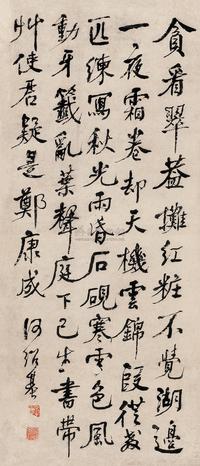 貪看翠蓋攤紅粧不覺湖邊
一夜霜卷却天機雲錦段從教
匹練寫秋光雨昏石硯寒雲色風
動牙籤亂葉聲庭下已生書帶
艸使君疑是鄭康成 何紹基